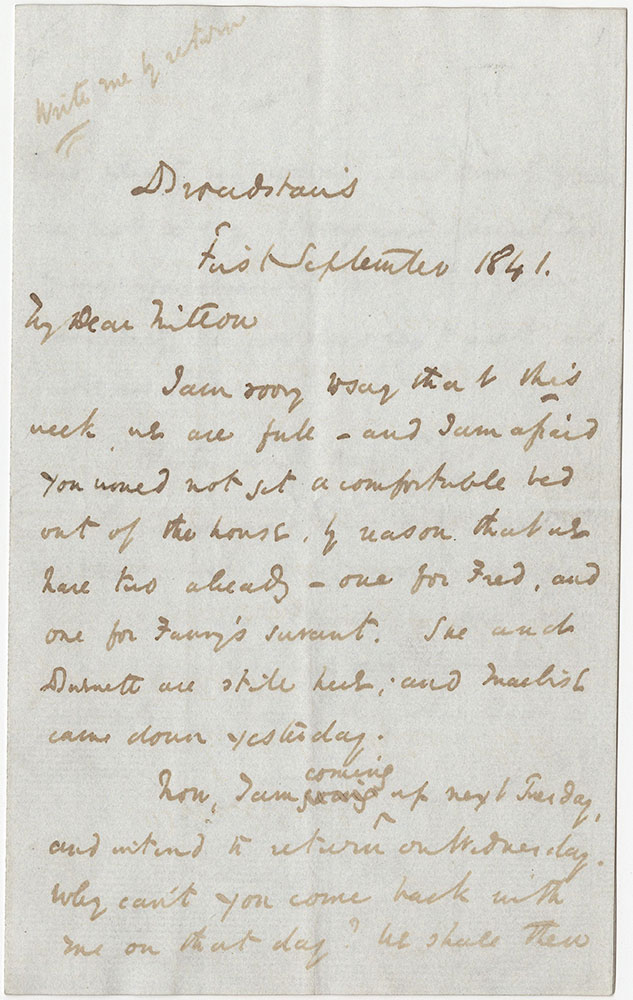 Write me by return
Broadstairs
First September 1841.
My Dear Mitton
I am sorry to say that this
week we are full – and I am afraid
you would not get a comfortable bed
out of the house, by reason that we
have two already – one for Fred, and
one for Fanny's servant. She and
Burnett are still here; and Maclise
came down yesterday.
Now, I am coming up next Tuesday,
and intend to return on Wednesday.
Why can't you come back with
me on that day? We shall then